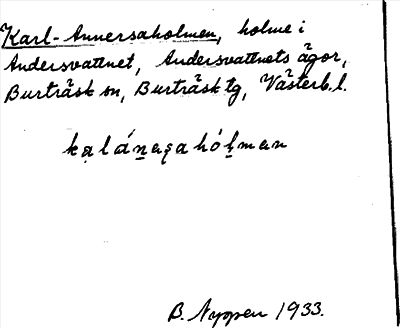 Karl-Annersaholmen, holme i
Andersvattnet, Andersvattnets ägor,
Burträsk sn, Burträsk tg, Västerb. l.
kạlánạgahóḷman
B. Nyppen 1933.